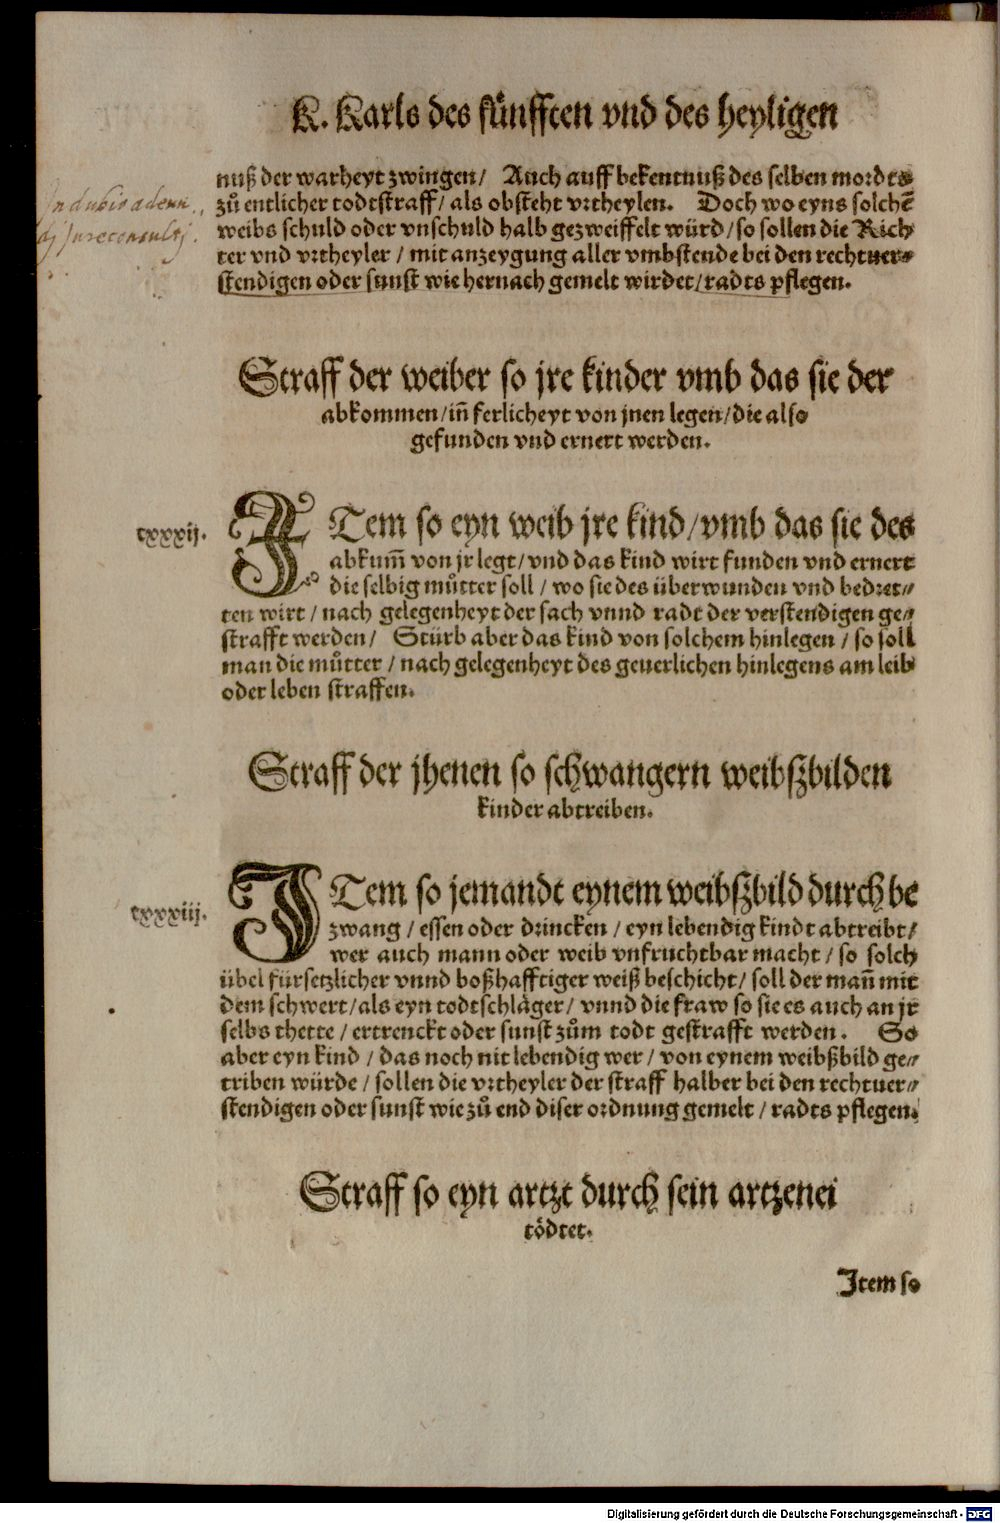 K. Karls des fünfften vnd des heyligen
nuß der warheyt zwingen/ Auch auff bekentnuß des selben mordts
zů entlicher todtstraff/ als obsteht vrtheylen. Doch wo eyns solchẽ
weibs schuld oder vnschuld halb gezweiffelt würd/ so sollen die Rich
ter vnd vrtheyler / mit anzeygung aller vmbstende bei den rechtuer⸗
stendigen oder sunst wie hernach gemelt wirdet/ radts pflegen.
In dubiis adeun
dj Jureconsultj.
Straff der weiber so jre kinder vmb das sie der
abkommen/ iñ ferlicheyt von jnen legen/ die also
gefunden vnd ernert werden.
cxxxij.
ITem so eyn weib jre kind/ vmb das sie des
abkum̃ von jr legt/ vnd das kind wirt funden vnd ernert
die selbig můtter soll / wo sie des überwunden vnd bedret⸗
ten wirt / nach gelegenheyt der sach vnnd radt der verstendigen ge⸗
strafft werden/ Stürb aber das kind von solchem hinlegen / so soll
man die můtter / nach gelegenheyt des geuerlichen hinlegens am leib
oder leben straffen.
Straff der jhenen so schwangern weibßbilden
kinder abtreiben.
cxxxiij.
ITem so jemandt eynem weibßbild durch be
zwang / essen oder drincken / eyn lebendig kindt abtreibt/
wer auch mann oder weib vnfruchtbar macht / so solch
übel fürsetzlicher vnnd boßhafftiger weiß beschicht/ soll der mañ mit
dem schwert/ als eyn todtschläger/ vnnd die fraw so sie es auch an jr
selbs thette / ertrenckt oder sunst zům todt gestrafft werden. So
aber eyn kind / das noch nit lebendig wer / von eynem weibßbild ge⸗
triben würde / sollen die vrtheyler der straff halber bei den rechtuer⸗
stendigen oder sunst wie zů end diser ordnung gemelt / radts pflegen.
Straff so eyn artzt durch sein artzenei
tödtet.
Item so
Digitalisierung gefördert durch die Deutsche Forschungsgemeinschaft - DFG